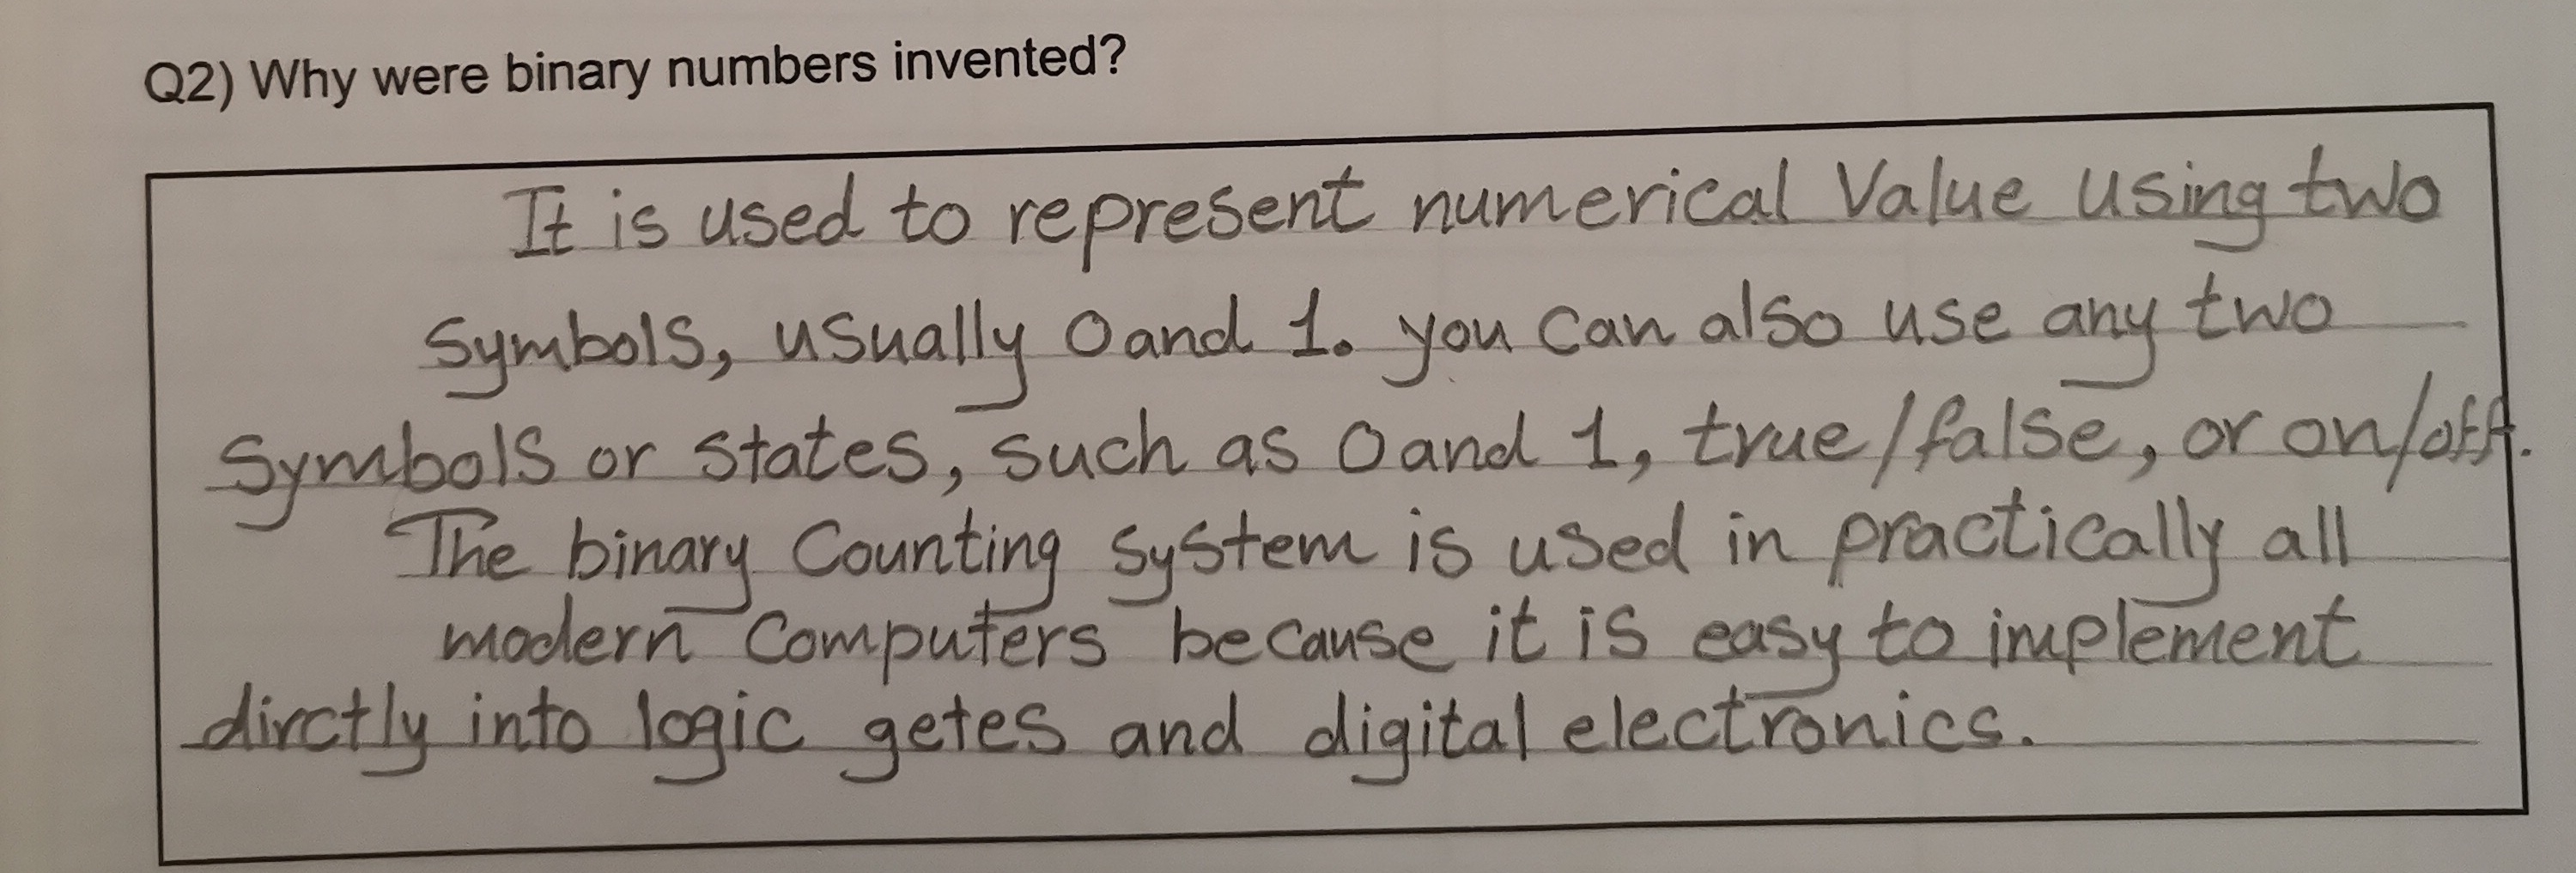 Q2) Why were binary numbers invented?
It is used to represent numerical Value using two
Symbols, usually 0 and 1. you can also use any two
Symbols or states, such as 0 and 1, true/false, or on/off.
The binary Counting system is used in practically all
modern Computers because it is easy to implement
dirctly into logic getes and digital electronics.